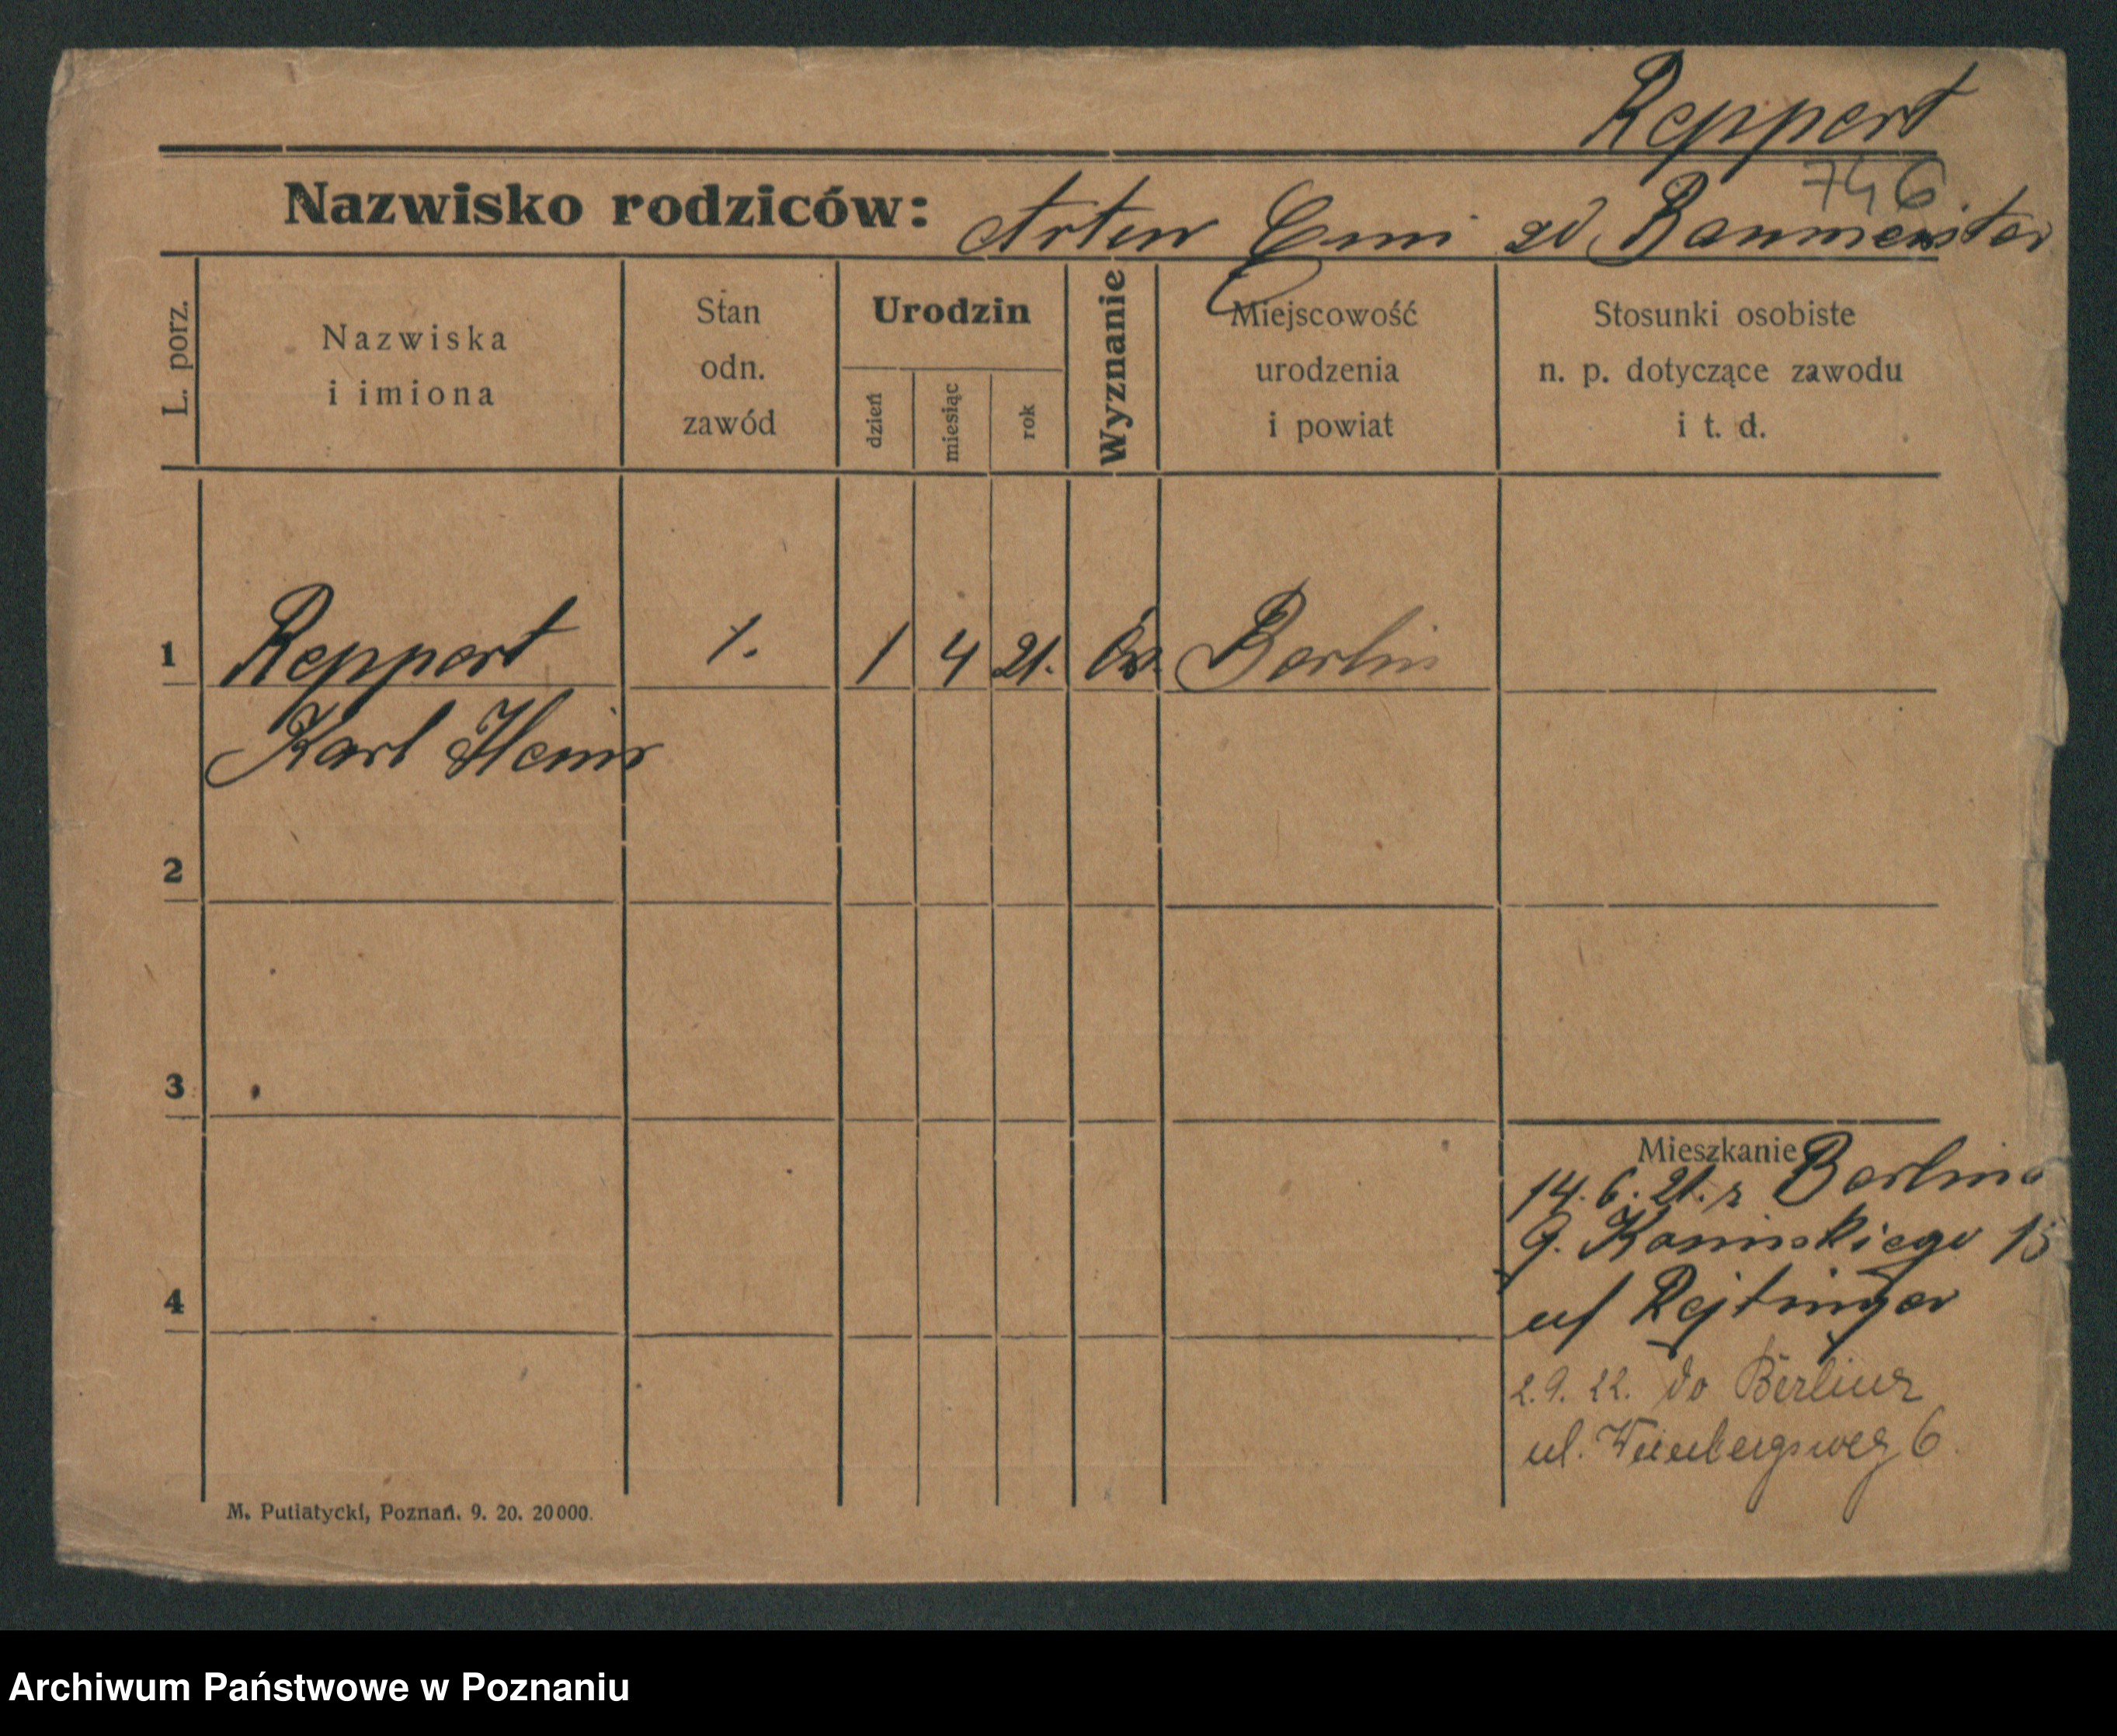 Reppert
746
Nazwisko rodziców: Artur Emi zd Baumeister
L. porz.
Nazwiska i imiona
Stan odn. zawód
Urodzin
dzień
miesiąc
rok
Wyznanie
Miejscowość urodzenia i powiat
Stosunki osobiste n. p. dotyczące zawodu i t. d.
1 Reppert 1 4 21. Ew. Berlin
Karl Heinr
2
3
Mieszkanie
14. 6. 21. z Berlina
4
u/ Rejtinger
2.9.22. do Berlina
ul. Weinbergsweg 6
M. Putiatycki, Poznań. 9. 20. 20000.
Archiwum Państwowe w Poznaniu